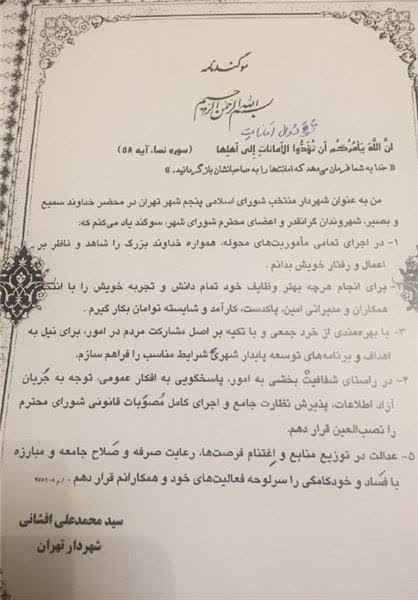 سوگندنامه
بسم الله الرحمن الرحیم
انَّ اللّهَ یَأمُرُکُم أن تُؤَدُّوا الأمانات إلی أهلِها (سوره نساء، آیه ۵۸)
« خدا به شما فرمان می‌دهد که امانت‌ها را به صاحبانشان بازگردانید. »
من به عنوان شهردار منتخب شورای اسلامی پنجم شهر تهران در محضر خداوند سمیع
و بصیر، شهروندان گرانقدر و اعضای محترم شورای شهر، سوگند یاد می‌کنم که:
۱- در اجرای تمامی مأموریت‌های محوله، همواره خداوند بزرگ را شاهد و ناظر بر
اعمال و رفتار خویش بدانم .
۲- برای انجام هرچه بهتر وظایف خود تمام دانش و تجربه خویش را با
همکاران و مدیرانی امین، پاکدست، کارآمد و شایسته توامان بکار گیرم .
۳- با بهره‌مندی از خرد جمعی و با تکیه بر اصل مشارکت مردم در امور، برای نیل به
اهداف و برنامه‌های توسعه پایدار شهری شرایط مناسب را فراهم سازم.
۴- در راستای شفافیت بخشی به امور، پاسخگویی به افکار عمومی، توجه به جریان
آزاد اطلاعات، پذیرش نظارت جامع و اجرای کامل مصوبات قانونی شورای محترم
را نصب‌العین قرار دهم.
۵- عدالت در توزیع منابع و اغتنام فرصت‌ها، رعایت صرفه و صلاح جامعه و مبارزه
با فساد و خودکامگی را سرلوحه فعالیت‌های خود و همکارانم قرار دهم .
سید محمدعلی افشانی
شهردار تهران